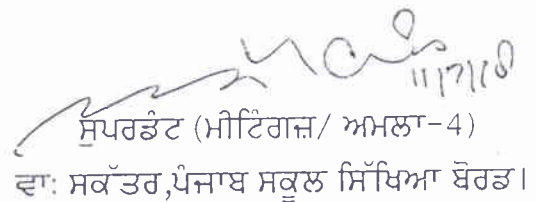 11/7/18
ਸੁਪਰਡੰਟ (ਮੀਟਿੰਗਜ਼/ ਅਮਲਾ-4)
ਵਾ: ਸਕੱਤਰ,ਪੰਜਾਬ ਸਕੂਲ ਸਿੱਖਿਆ ਬੋਰਡ।